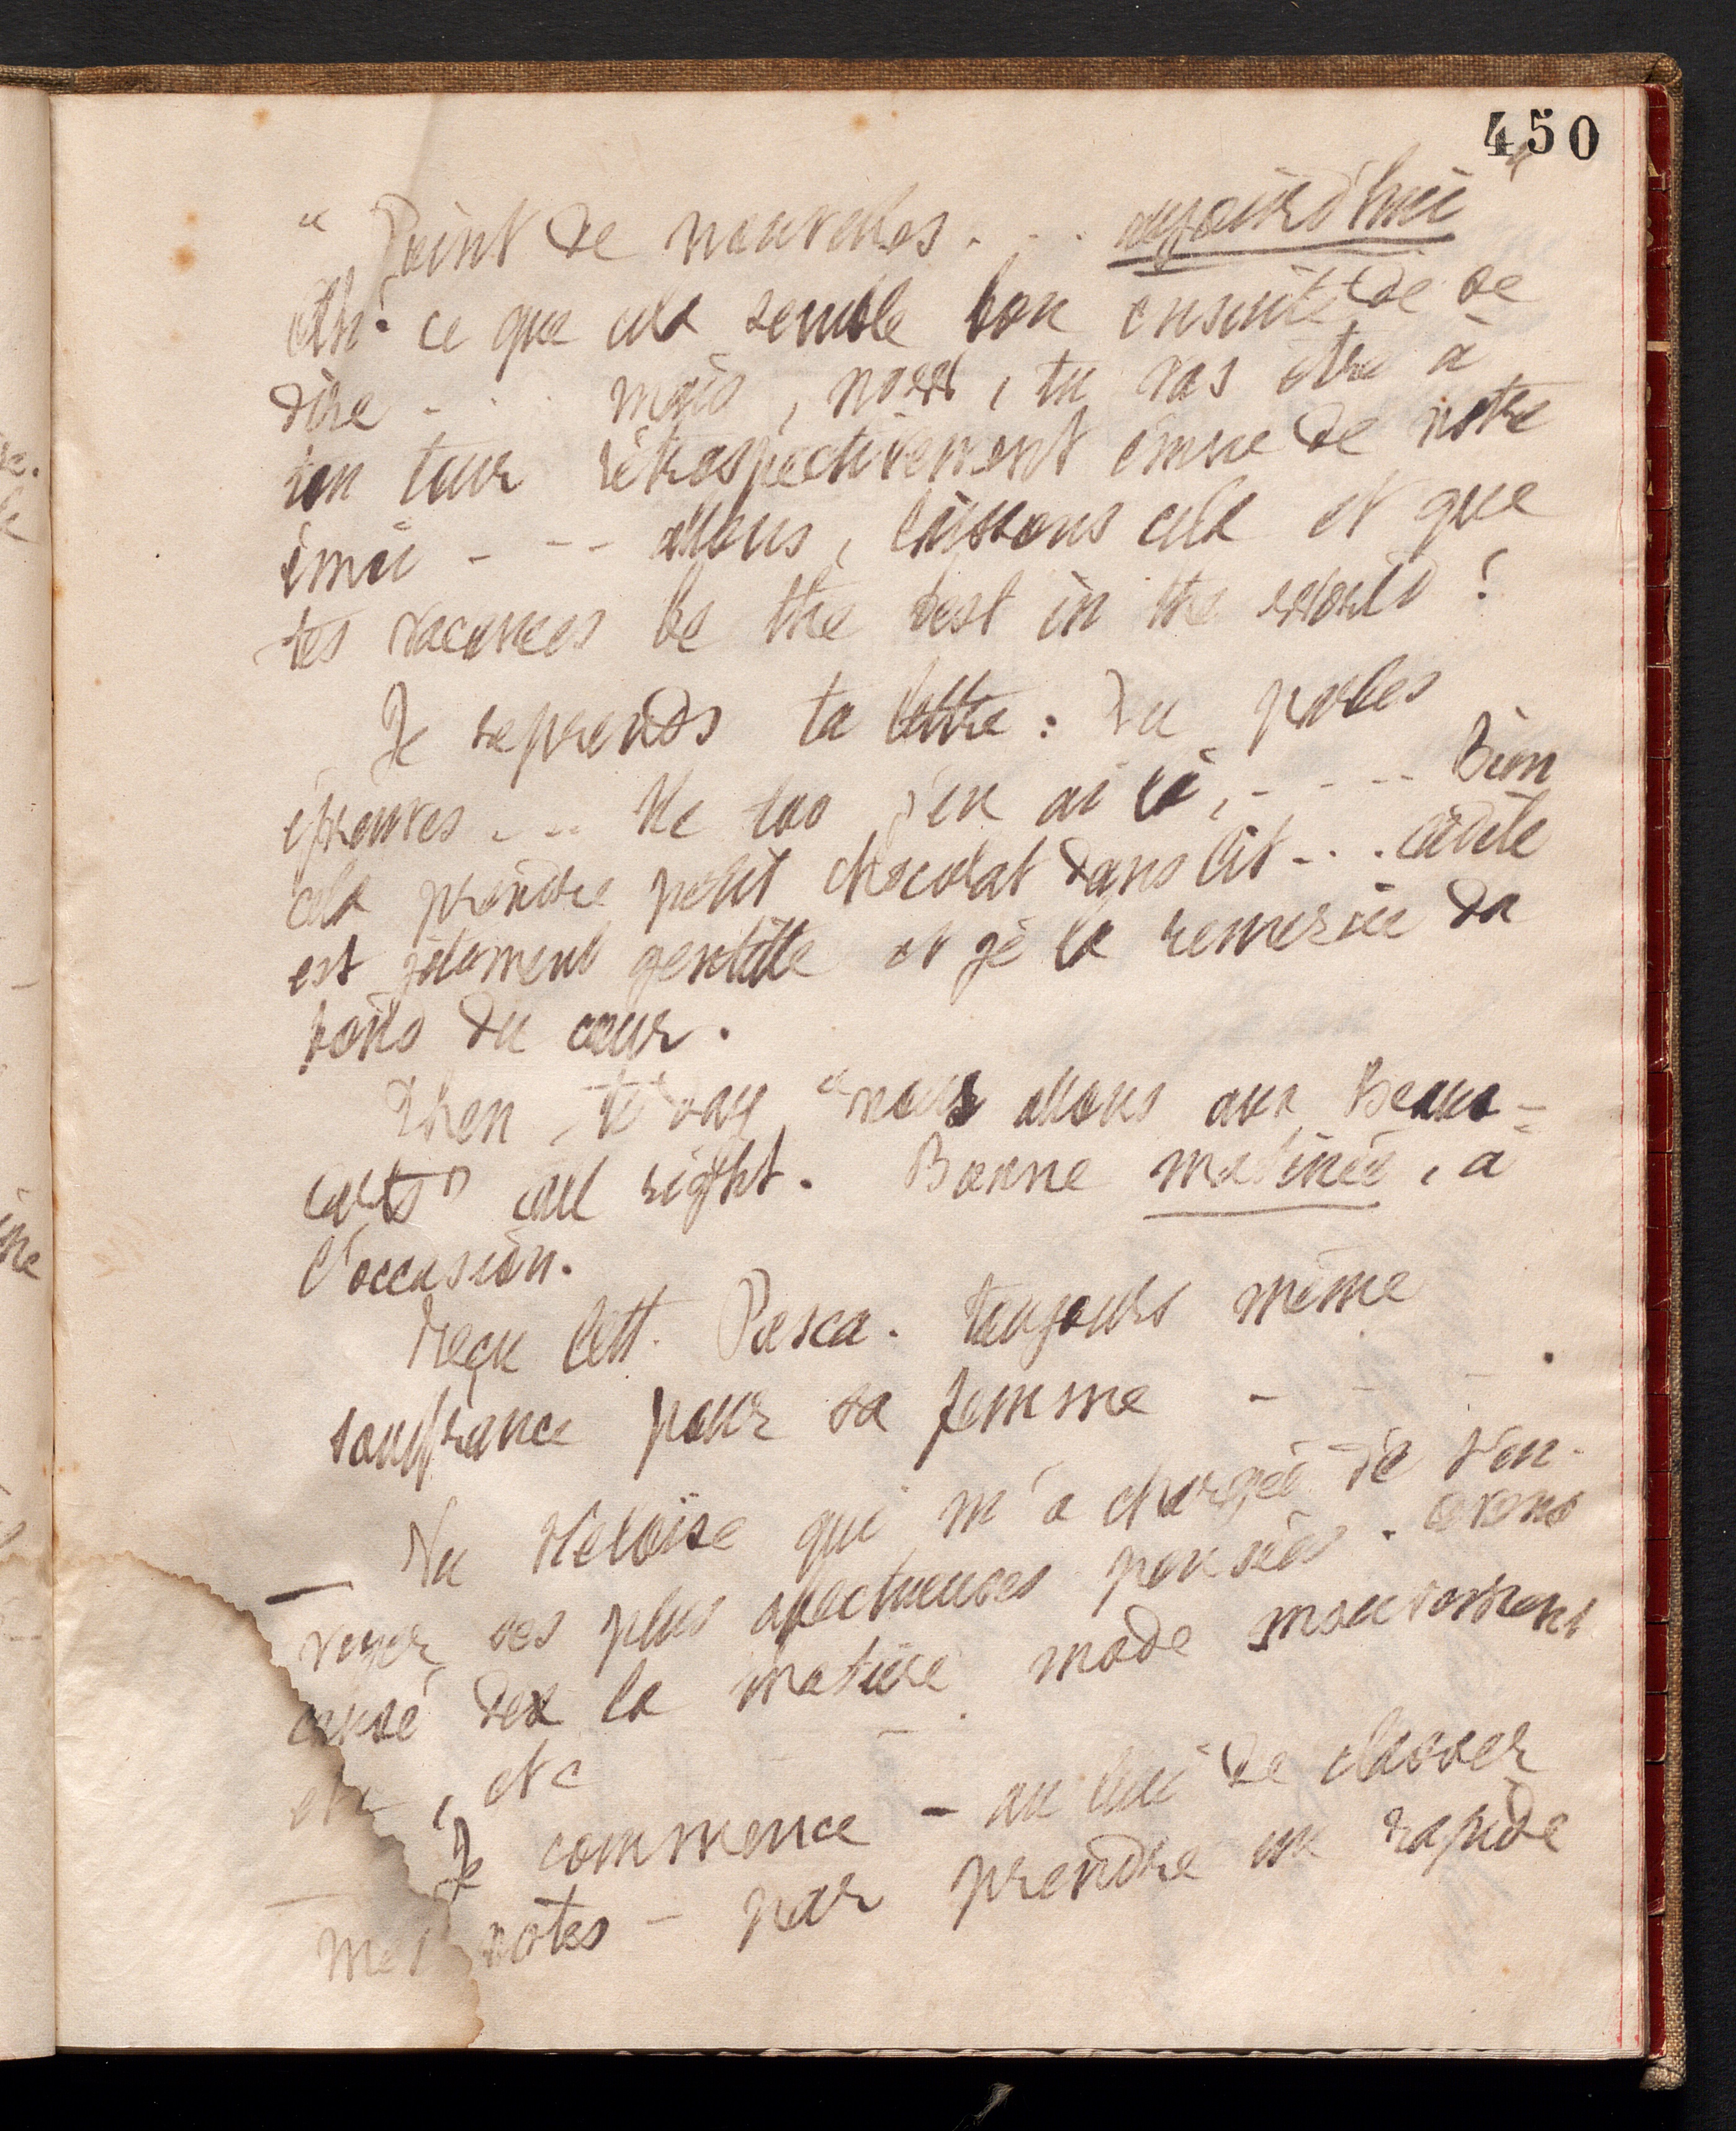 450
" Point de nouvelles . . . aujourd'hui "
Ah! ce que cela semble bon ensuite de se
dire - . . mais, , tu vas être à
ton tour rétrospectivement émue de notre
émoi - - - allons, laissons cela et que
tes vacances be the best in the world !
Je reprends ta lettre : Tu parles
épreuves - - . Me too j'en ai là, - - - - Bien
cela prendre petit chocolat dans lit - . . Cadète
est gentille et je la remercie du
fons du cœur .
Then, to day "nous allons aux Beaux-
Arts" all right . Bonne matinée, à
l'occasion .
Reçu lett. Pasca . toujours même
souffrance pour sa femme - - - .
— Vu Héloïse qui m'a chargée de t'en-
voyer ses plus affectueuses pensées . avons
causé la matière mode
etc, etc - - - .
— Je commence - au lieu de classer
mes notes - par prendre un rapide